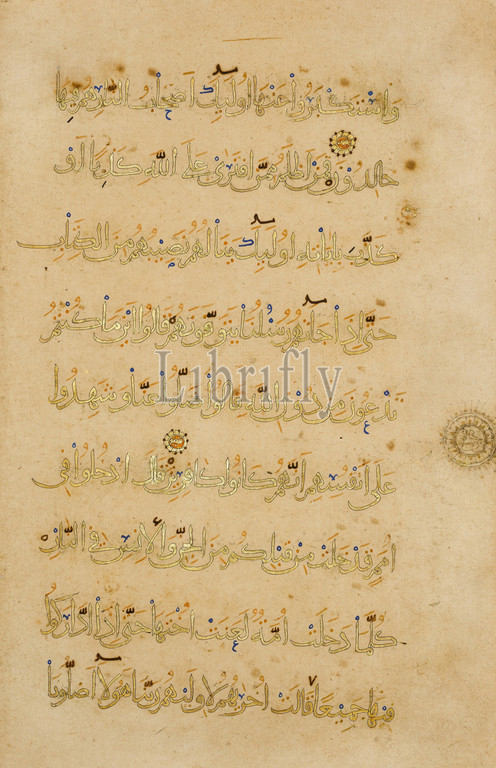 وَاسْتَكْبَرُوا عَنْهَا أُولَٰئِكَ أَصْحَابُ النَّارِ هُمْ فِيهَا
خَالِدُونَ فَمَنْ أَظْلَمُ مِمَّنِ افْتَرَىٰ عَلَى اللَّهِ كَذِبًا أَوْ
كَذَّبَ بِآيَاتِهِ أُولَٰئِكَ يَنَالُهُمْ نَصِيبُهُمْ مِنَ الْكِتَابِ
حَتَّىٰ إِذَا جَاءَتْهُمْ رُسُلُنَا يَتَوَفَّوْنَهُمْ قَالُوا أَيْنَ مَا كُنْتُمْ
Librifly
تَدْعُونَ مِنْ دُونِ اللَّهِ قَالُوا ضَلُّوا عَنَّا وَشَهِدُوا
عَلَىٰ أَنْفُسِهِمْ أَنَّهُمْ كَانُوا كَافِرِينَ قَالَ ادْخُلُوا فِي
أُمَمٍ قَدْ خَلَتْ مِنْ قَبْلِكُمْ مِنَ الْجِنِّ وَالْإِنْسِ فِي النَّارِ
كُلَّمَا دَخَلَتْ أُمَّةٌ لَعَنَتْ أُخْتَهَا حَتَّىٰ إِذَا ادَّارَكُوا
فِيهَا جَمِيعًا قَالَتْ أُخْرَاهُمْ لِأُولَاهُمْ رَبَّنَا هَٰؤُلَاءِ أَضَلُّونَا